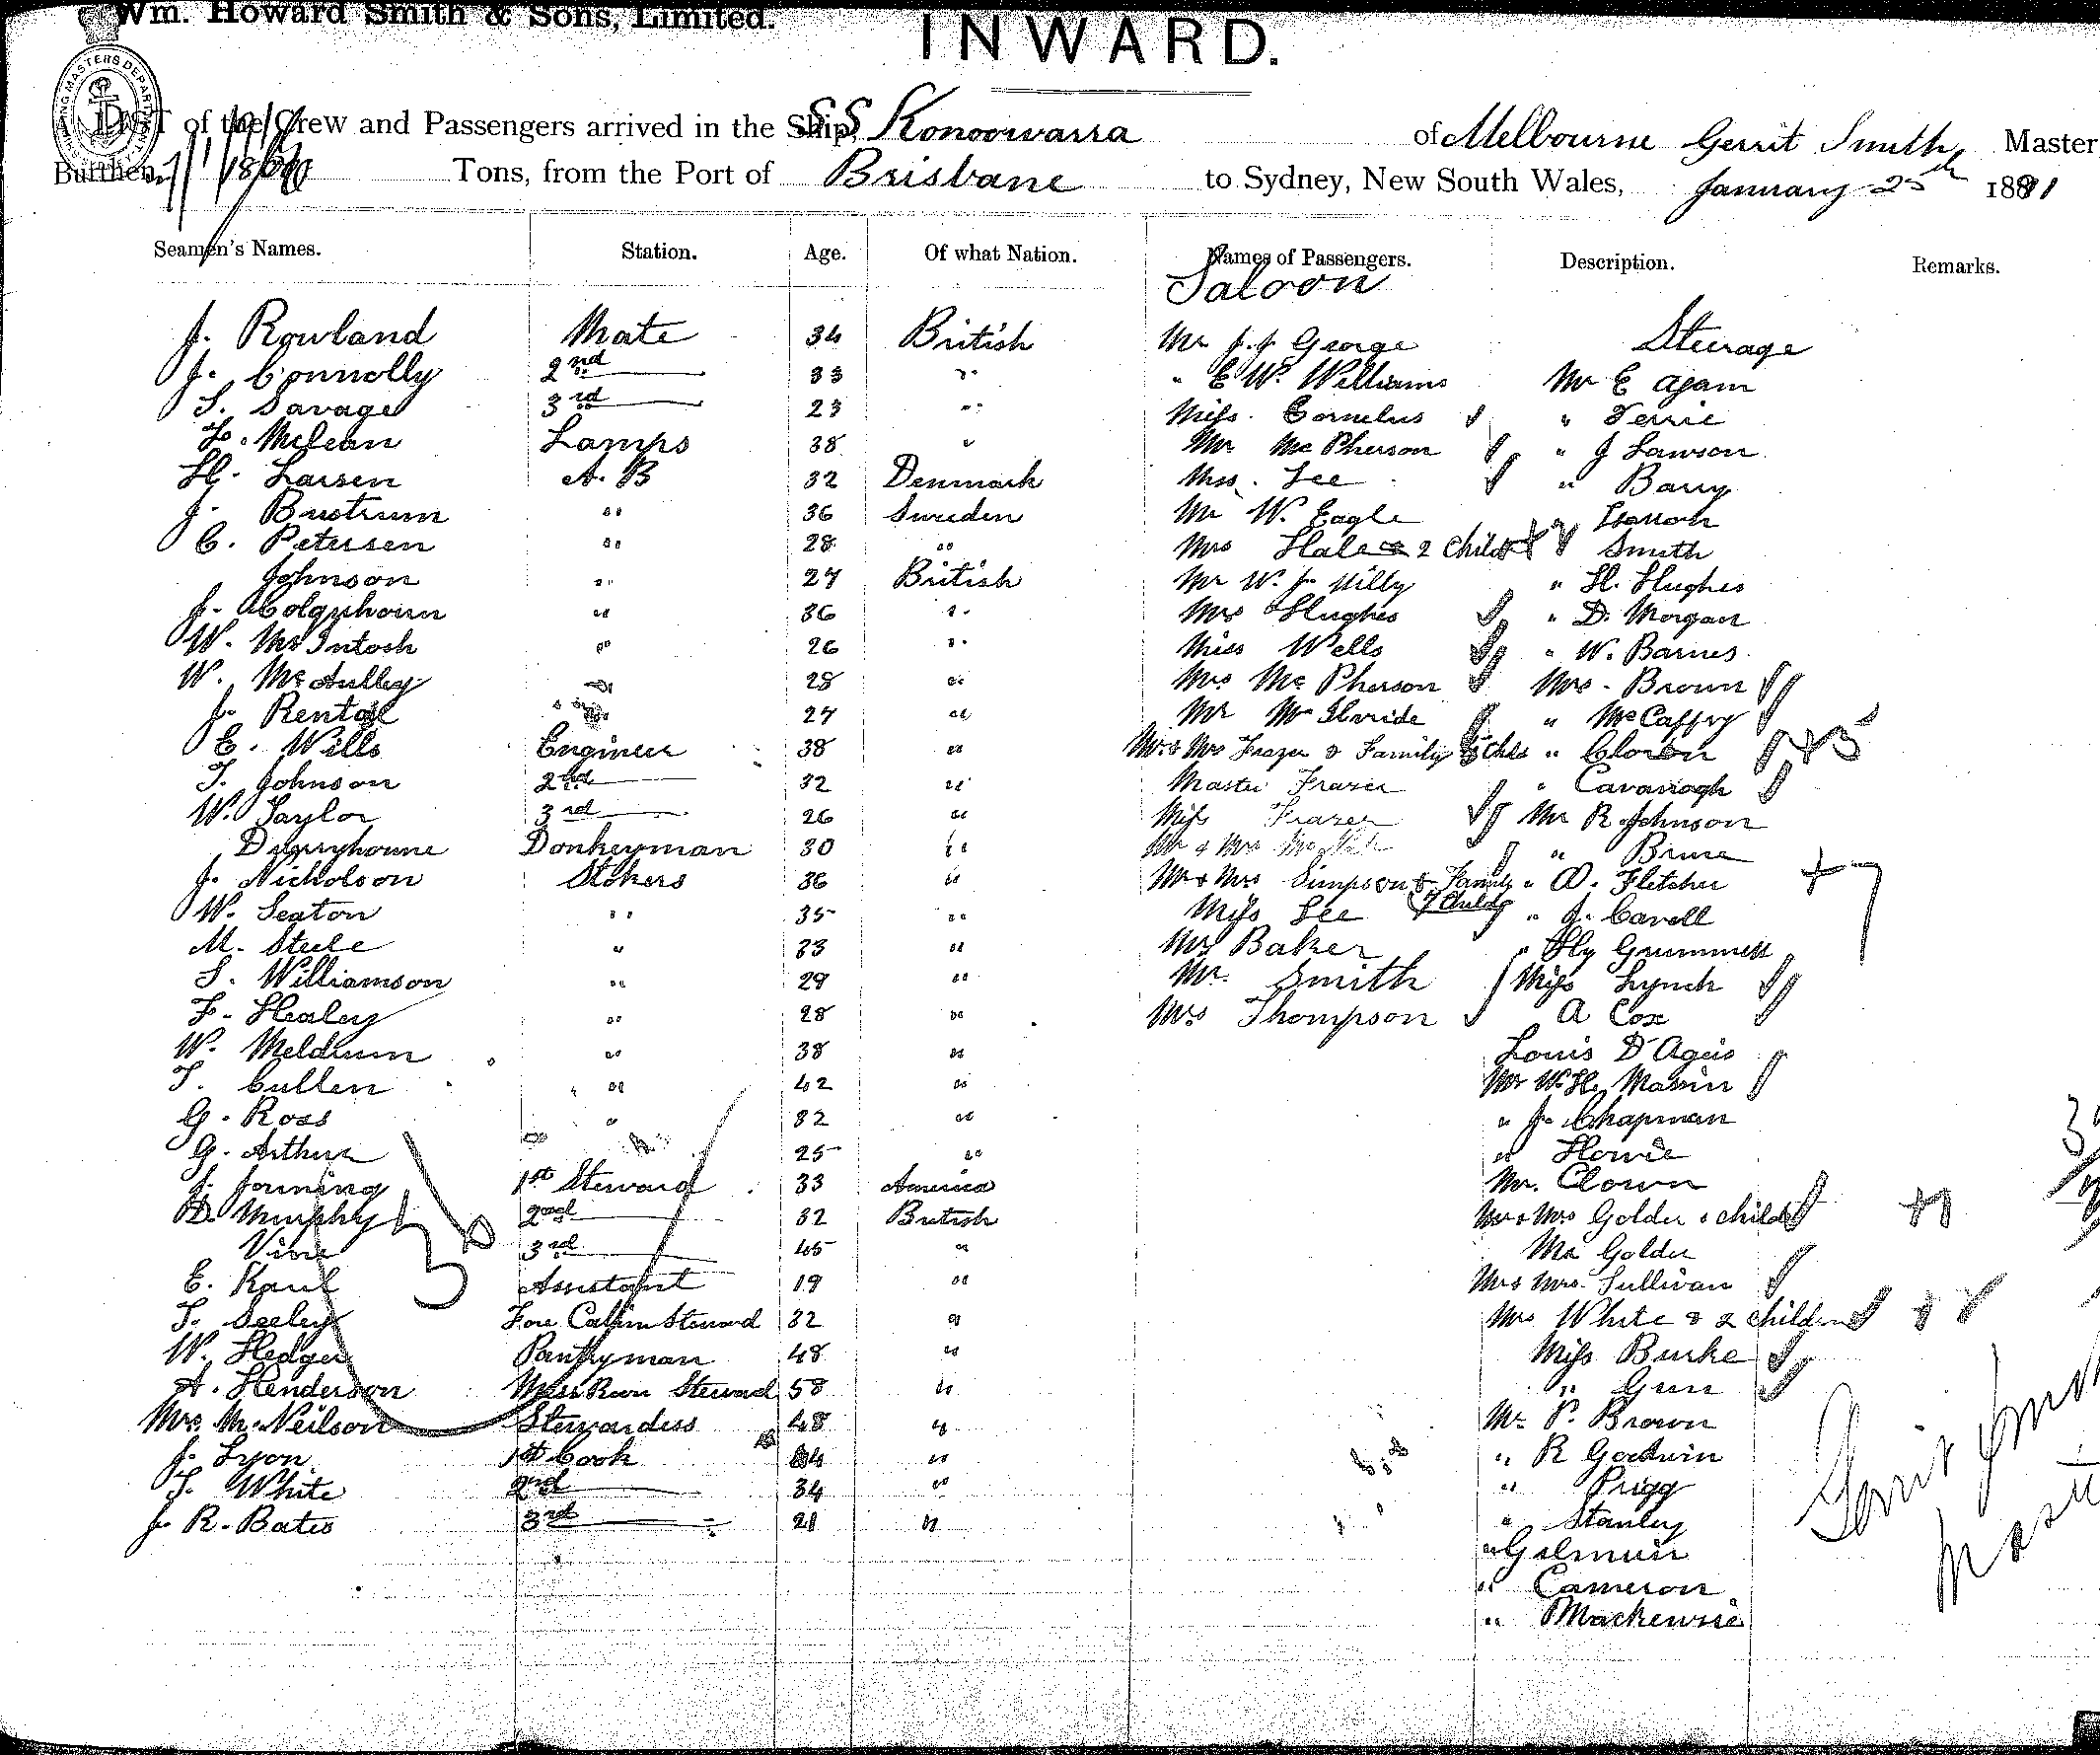 Wm. Howard Smith & Sons, Limited.
INWARD.
LIST of the Crew and Passengers arrived in the Ship, SS Konoowarra of Melbourne Gerrit Smith Master
Burthen Tons, from the Port of Brisbane to Sydney, New South Wales, January 25th 1891
Seamen's Names. Station. Age. Of what Nation. Names of Passengers. Description. Remarks.
Saloon
J. Rowland Mate 34 British Mr J.J George Steerage
J. Connolly 2nd 33 " " E W. Williams Mr E Agam
S. Savage 3rd 23 " Miss Cornelus " Ferrie
F. McLean Lamps 38 " Mr McPherson " J Lawson
H. Larsen A. B 32 Denmark Mrs. Lee " Barry
J. Bustrum " 36 Sweden Mr W. Eagle "
C. Petersen " 28 " Mrs Hale & 2 Child " Smith
Johnson " 27 British Mr W. J. Nilly " H. Hughes
J. Colquhoun " 36 " Mrs Hughes " D. Morgan
W. McIntosh " 26 " Miss Wells " W. Barnes
W. McAulley " 28 " Mrs McPherson Mrs. Brown
J. Rental " 27 " Mr " McCaffry
E. Wills Engineer 38 " Mr & Mrs Frazer & Family 5 chld " +5
T. Johnson 2nd 32 " Master Frazer " Cavanagh
W. Taylor 3rd 26 " Miss Frazer Mr R. Johnson
Donkeyman 30 " Mr & Mrs " Bruce
J. Nicholson Stokers 36 " Mr & Mrs Simpson & Family " D. Fletcher +7
W. Seaton " 35 " Miss Lee 7 Child " J. Cavell
M. Steele " 33 " Mr Baker " Hy Grummett
S. Williamson " 29 " Mr. Smith Miss Lynch
F. Healey " 28 " Mrs Thompson A Cox
W. Meldrum " 38 " Louis D'Ageis
T. Cullen " 42 " Mr W. H. Massin
G. Ross " 32 " " J. Chapman
G. Arthur " 25 " " Howie
J. Jorning 1st Steward 33 America Mr. Clown
D. Murphy 2nd 32 British Mr & Mrs Golder & child +1
Vine 3rd 45 " Mr Golder
E. Kaul Assistant 19 " Mr & Mrs. Sullivan
T. Seeley Fore Cabin Steward 32 " Mrs White & 2 children +2
W. Hedger Pantryman 48 " Miss Burke
A. Henderson Mess Room Steward 58 " " Gun
Mrs. M. Neilson Stewardess 48 " Mr P. Brown
J. Lyon 1st Cook 34 " " R Godwin
T. White 2nd 34 " " Prigg
J. R. Bates 3rd 21 " " Stanley
" Gilmuir
" Cameron
" Mackenzie
36
Gerrit Smith